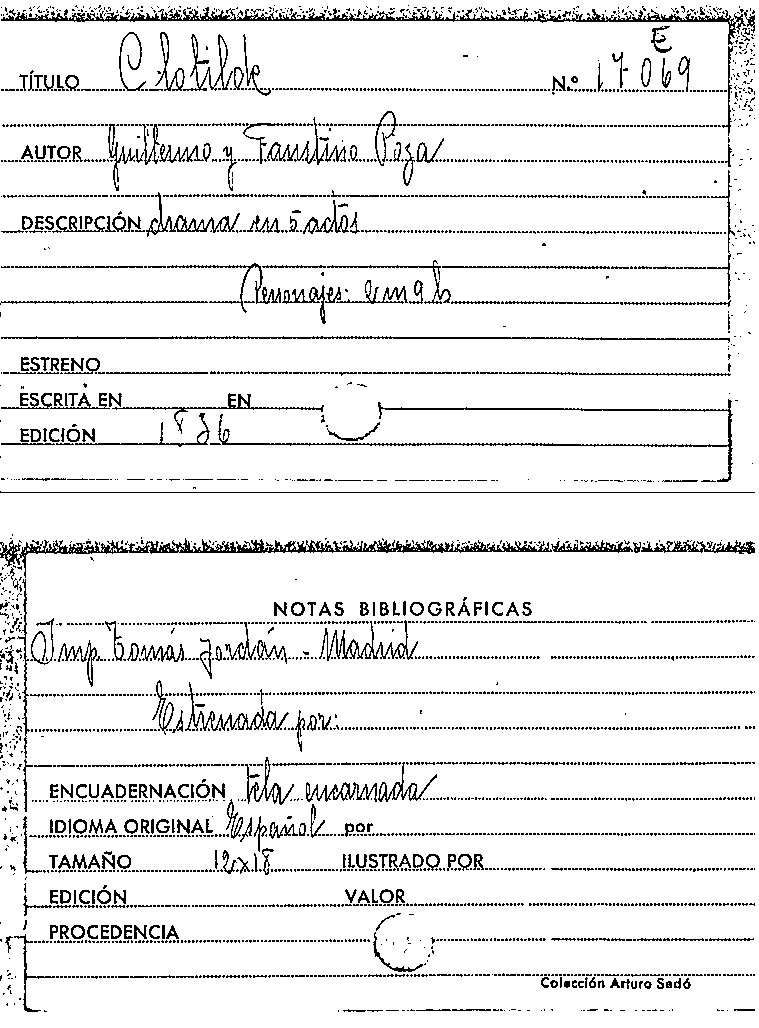 E
TÍTULO Clotilde N.º 17-069
AUTOR Guillermo y Faustino Poza
DESCRIPCIÓN drama en 5 actos
Personajes: 2 m 9 h
ESTRENO
ESCRITA EN EN
EDICIÓN 1836
NOTAS BIBLIOGRÁFICAS
Imp Tomás Jordán - Madrid
Estrenada por:
ENCUADERNACIÓN tela encarnada
IDIOMA ORIGINAL Español por
TAMAÑO 12x18 ILUSTRADO POR
EDICIÓN VALOR
PROCEDENCIA
Colección Arturo Sedó